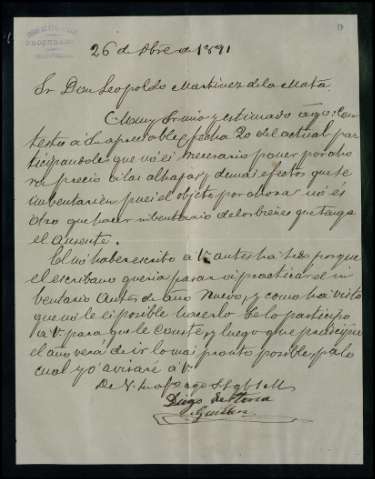 PROCURADOR
26 de Dbre de 1891
Sr Don Leopoldo Martinez de la Mata
Muy Sr mio y estimado amgo: Con
testo a Su apreciable fecha 20 del actual par
ticipandole que no es necesario poner por aho
ra precio a las alhajas y demas efectos que se
inbentarien pues el objeto por ahora no es
otro que hacer inbentario de los bienes que tenga
el Ausente.
El no haber escrito a V. antes ha sido porque
el escribano queria pasar a practicar el in
bentario antes de año Nuevo, y como ha visto
que no le es posible hacerlo se lo participo
a V. para que le conste, y luego que principie
el año verá de ir lo mas pronto posible, para lo
cual yo avisare a V.
De V. 
Diego de